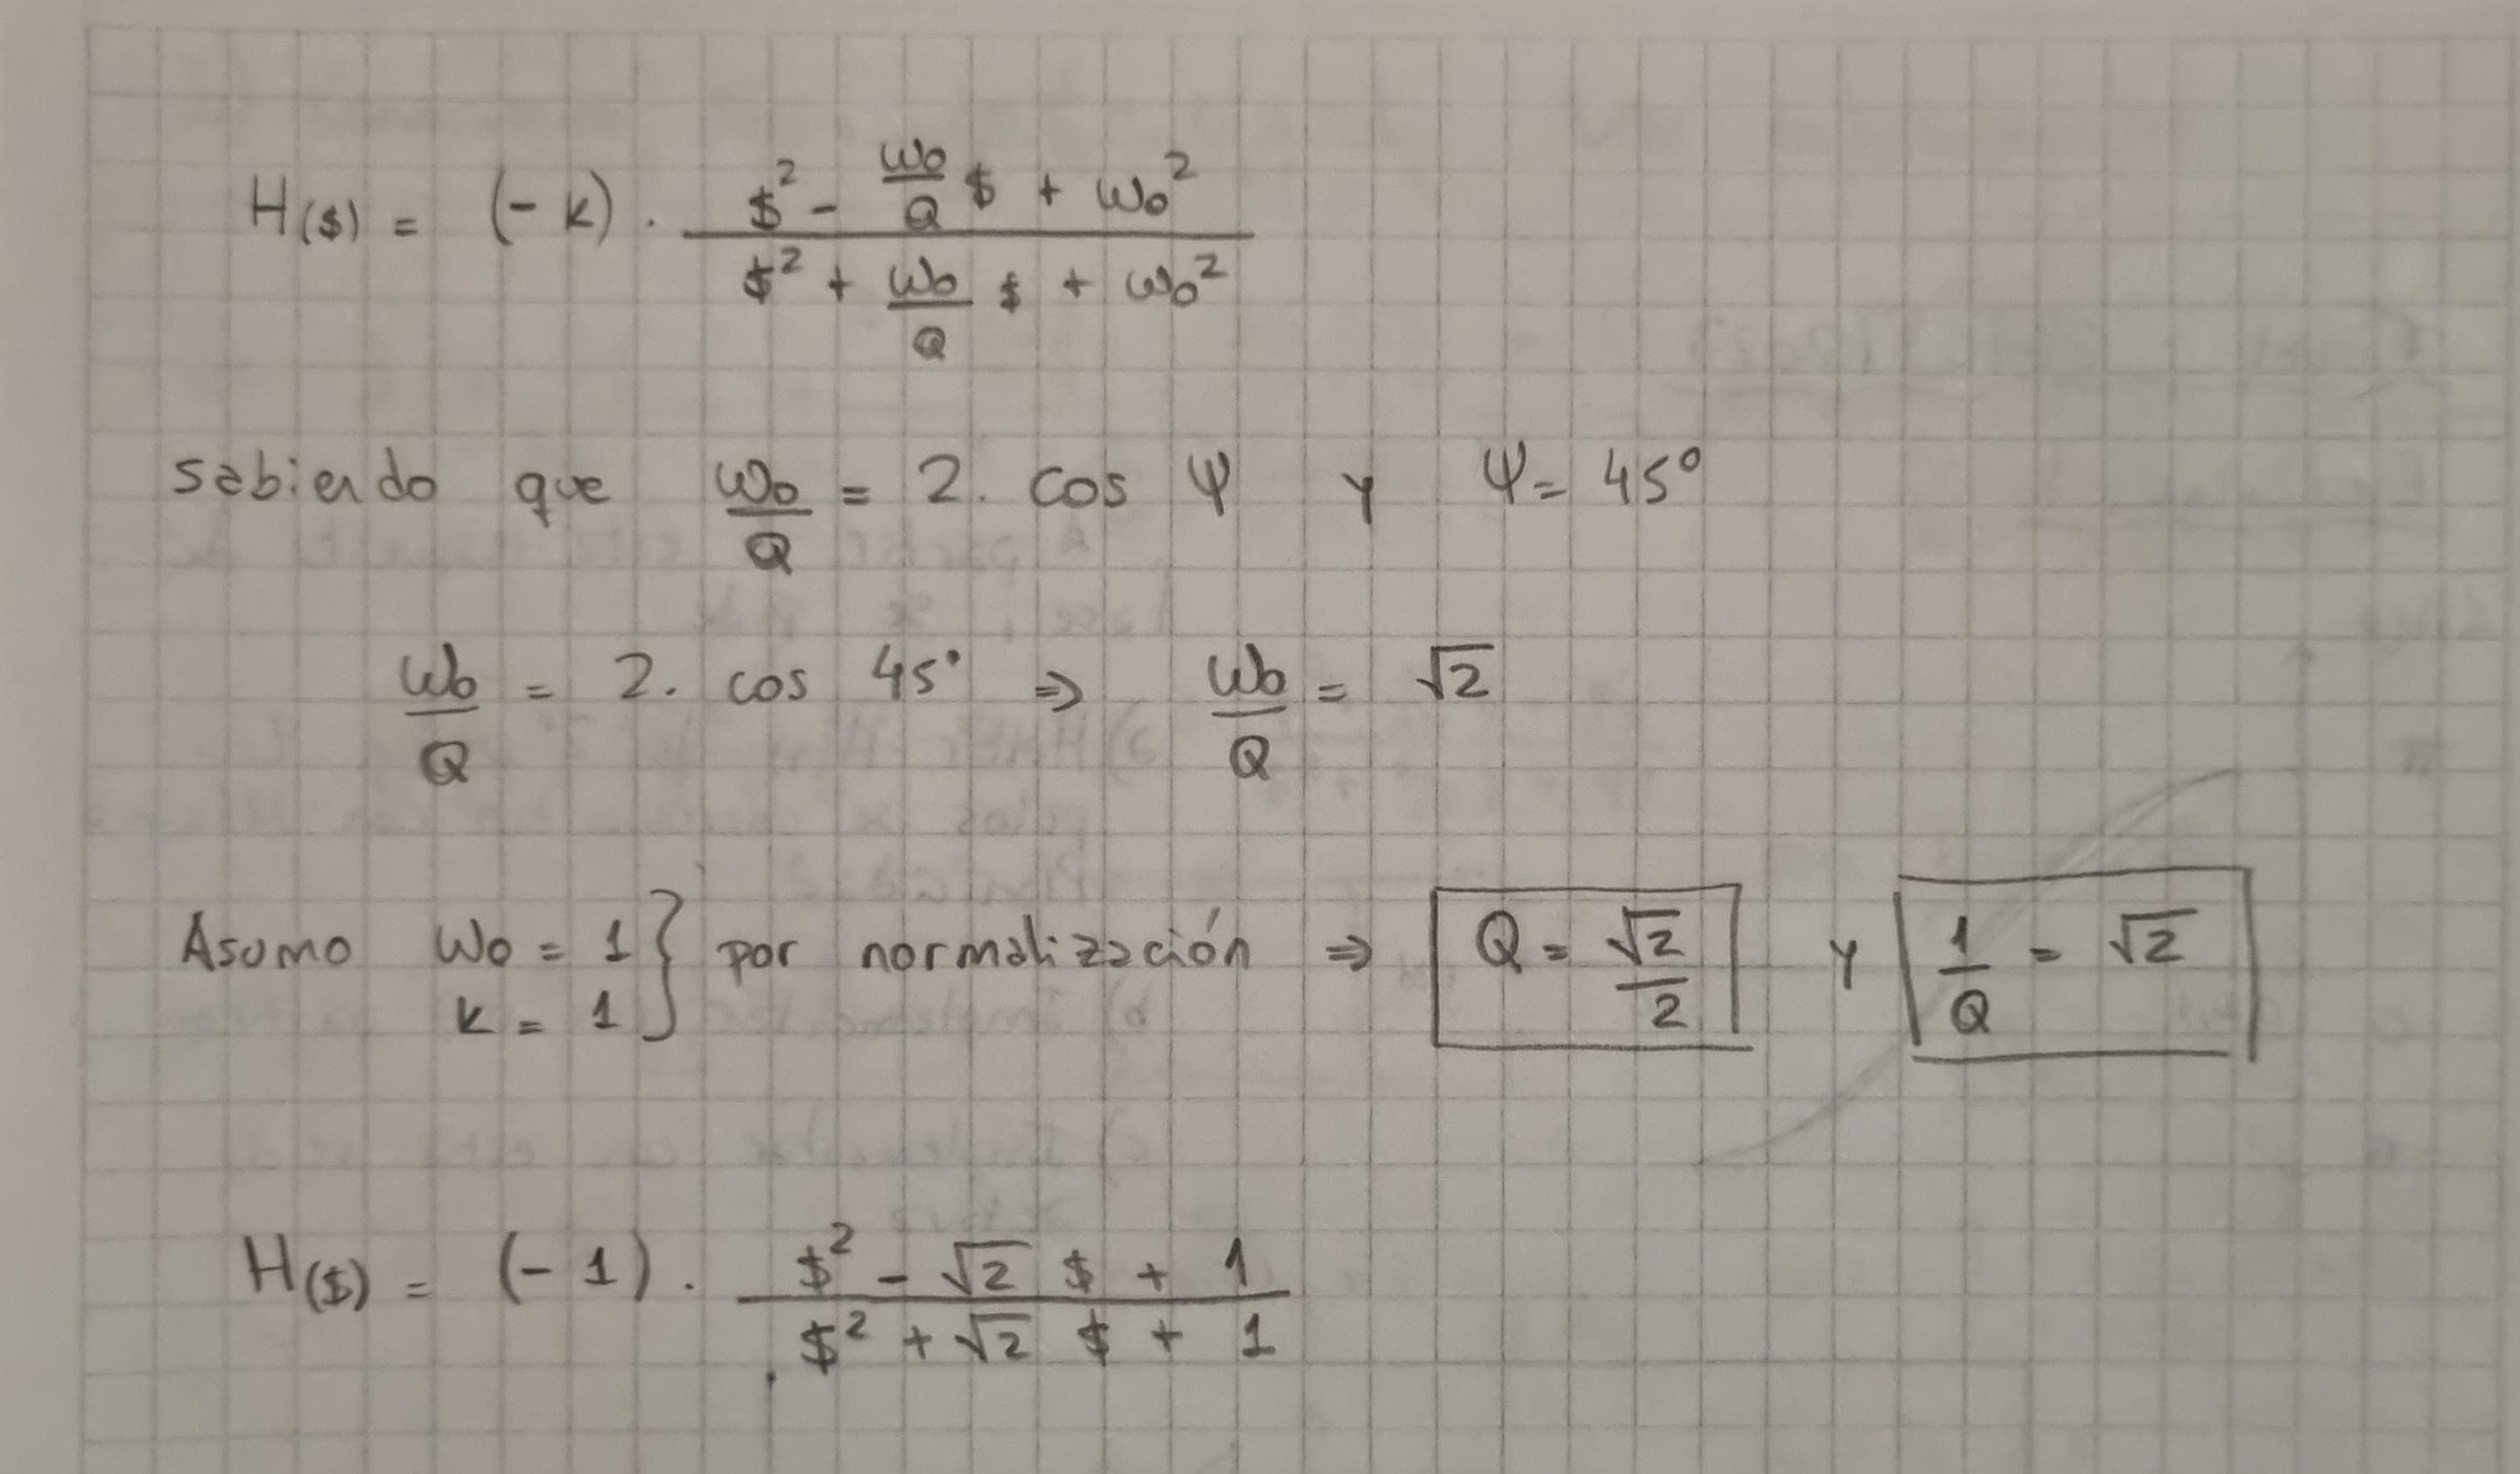 H($) = (-k) · ($² - ω₀/Q $ + ω₀²) / ($² + ω₀/Q $ + ω₀²)
sabiendo que ω₀/Q = 2. cos Ψ y Ψ = 45°
ω₀/Q = 2. cos 45° ⇒ ω₀/Q = √2
Asumo ω₀ = 1 } por normalización ⇒ Q = √2/2 y 1/Q = √2
k = 1
H($) = (-1) · ($² - √2 $ + 1) / ($² + √2 $ + 1)